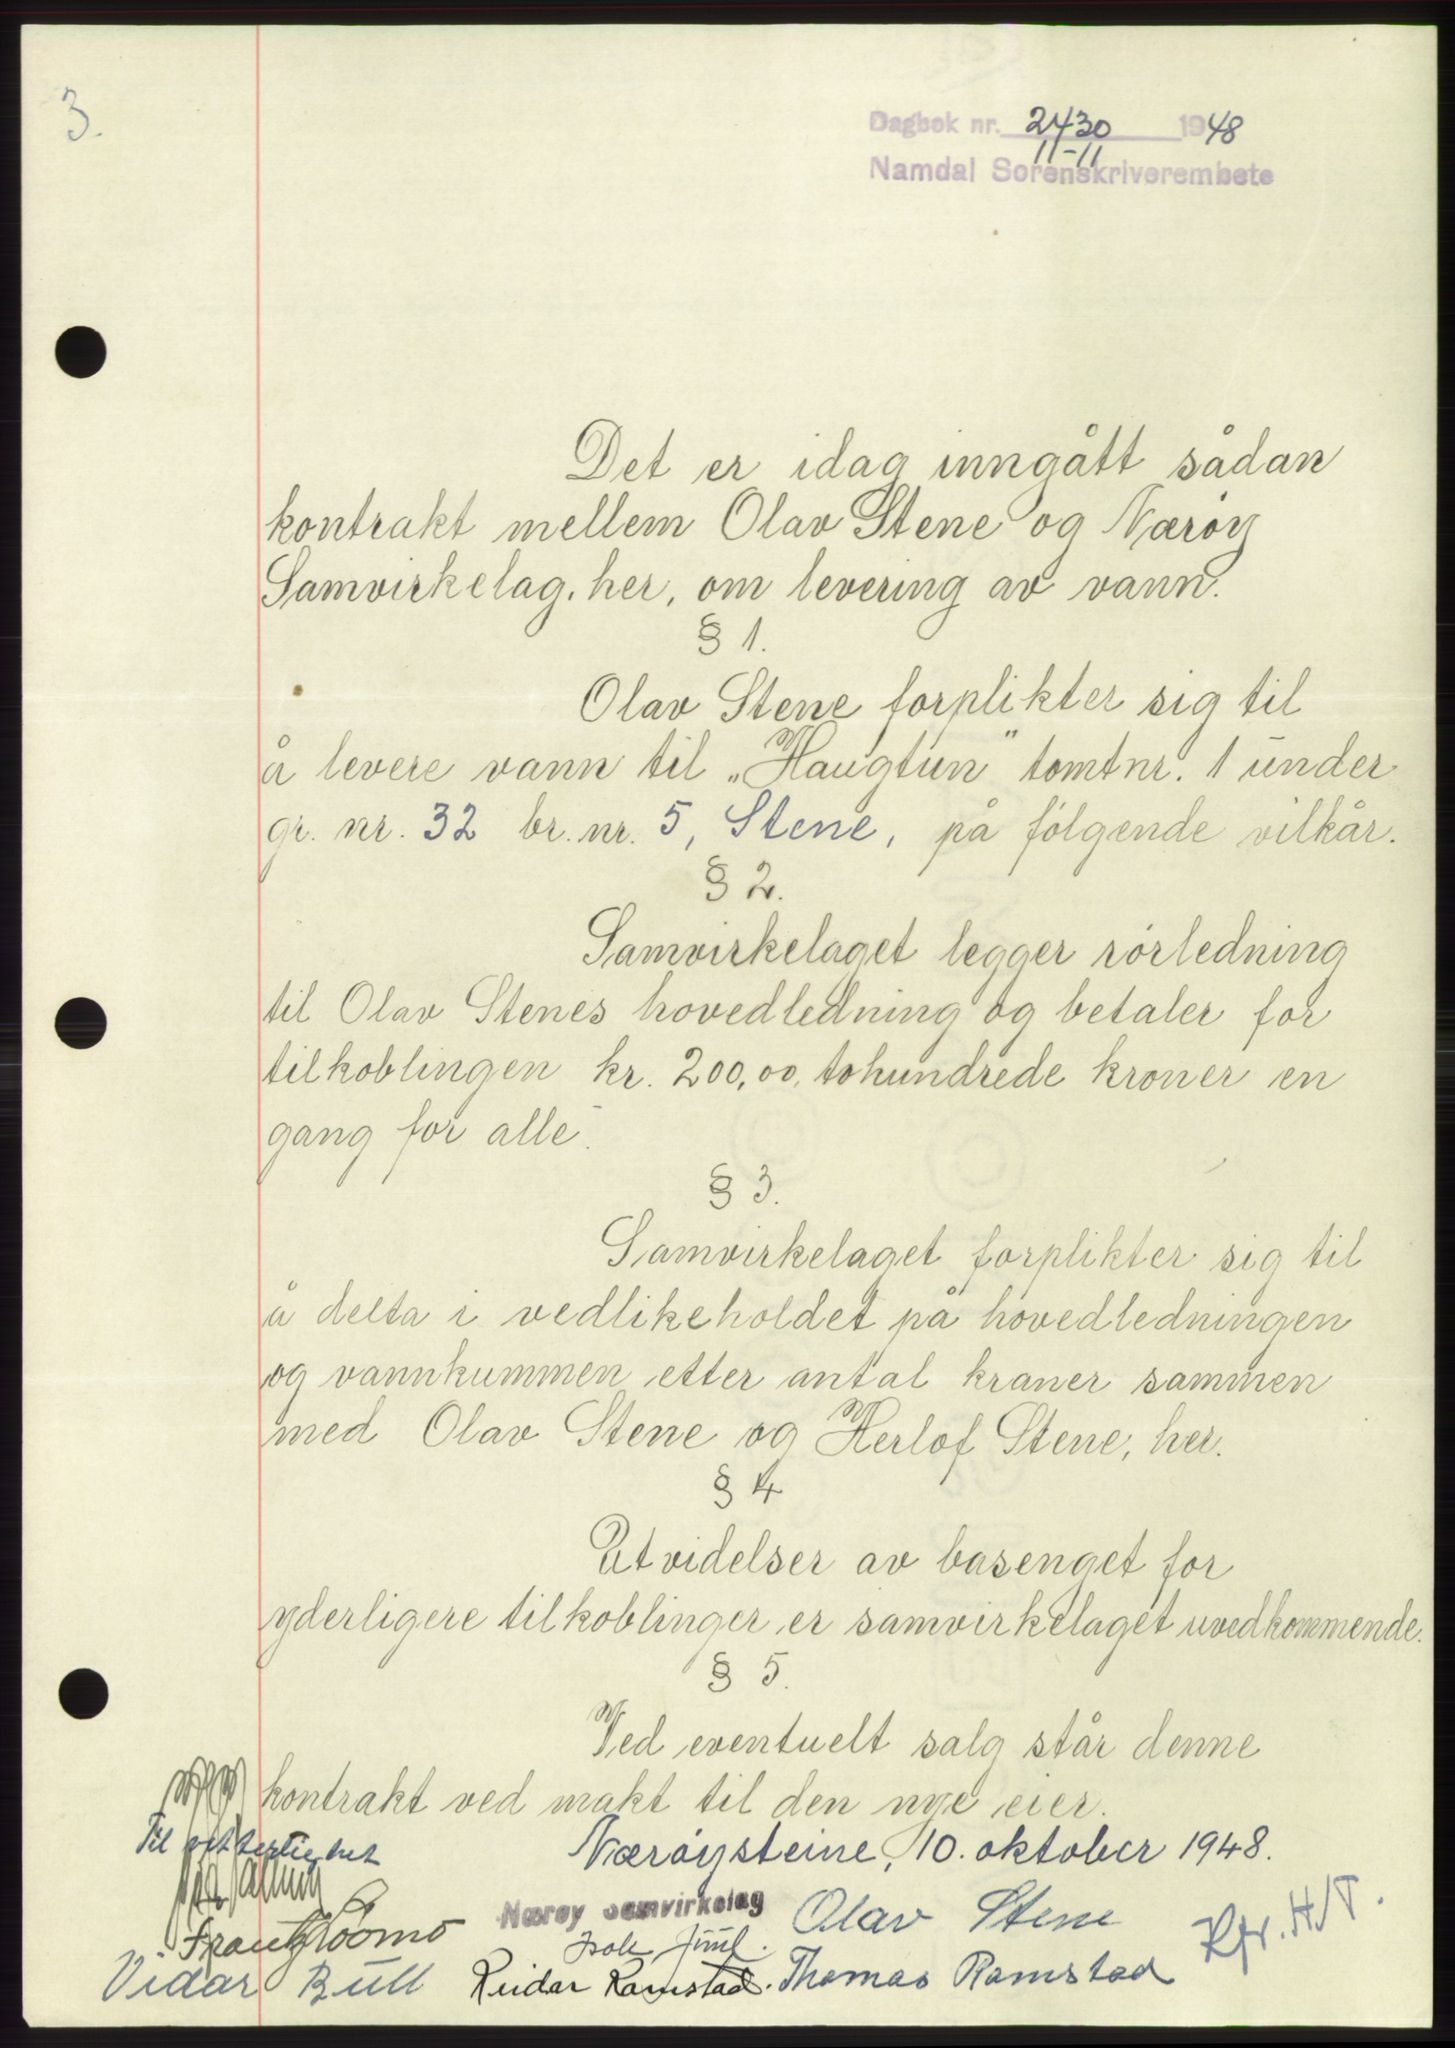 3.
Dagbok nr. 2430 1948
11-11
Namdal Sorenskriverembete
Det er idag inngått sådan
kontrakt mellem Olav Stene og Nærøy
Samvirkelag, her, om levering av vann.
§ 1.
Olav Stene forplikter sig til
å levere vann til „Haugtun" tomtnr. 1 under
gr. nr. 32 br. nr. 5, Stene, på følgende vilkår.
§ 2.
Samvirkelaget legger rörledning
til Olav Stenes hovedledning og betaler for
tilkoblingen kr. 200,00, tohundrede kroner en
gang for alle.
§ 3.
Samvirkelaget forplikter sig til
å delta i vedlikeholdet på hovedledningen
og vannkummen etter antal kraner sammen
med Olav Stene og Herlof Stene, her.
§ 4
Utvidelser av basenget for
yderligere tilkoblinger er samvirkelaget uvedkommende.
§ 5.
Ved eventuelt salg står denne
kontrakt ved makt til den nye eier.
Nærøysteine, 10. oktober 1948.
Til vitterlighet
Nærøy samvirkelag Olav Stene
Vidar Bull Reidar Ramstad. Thomas Ramstad
Kfr. H/T.